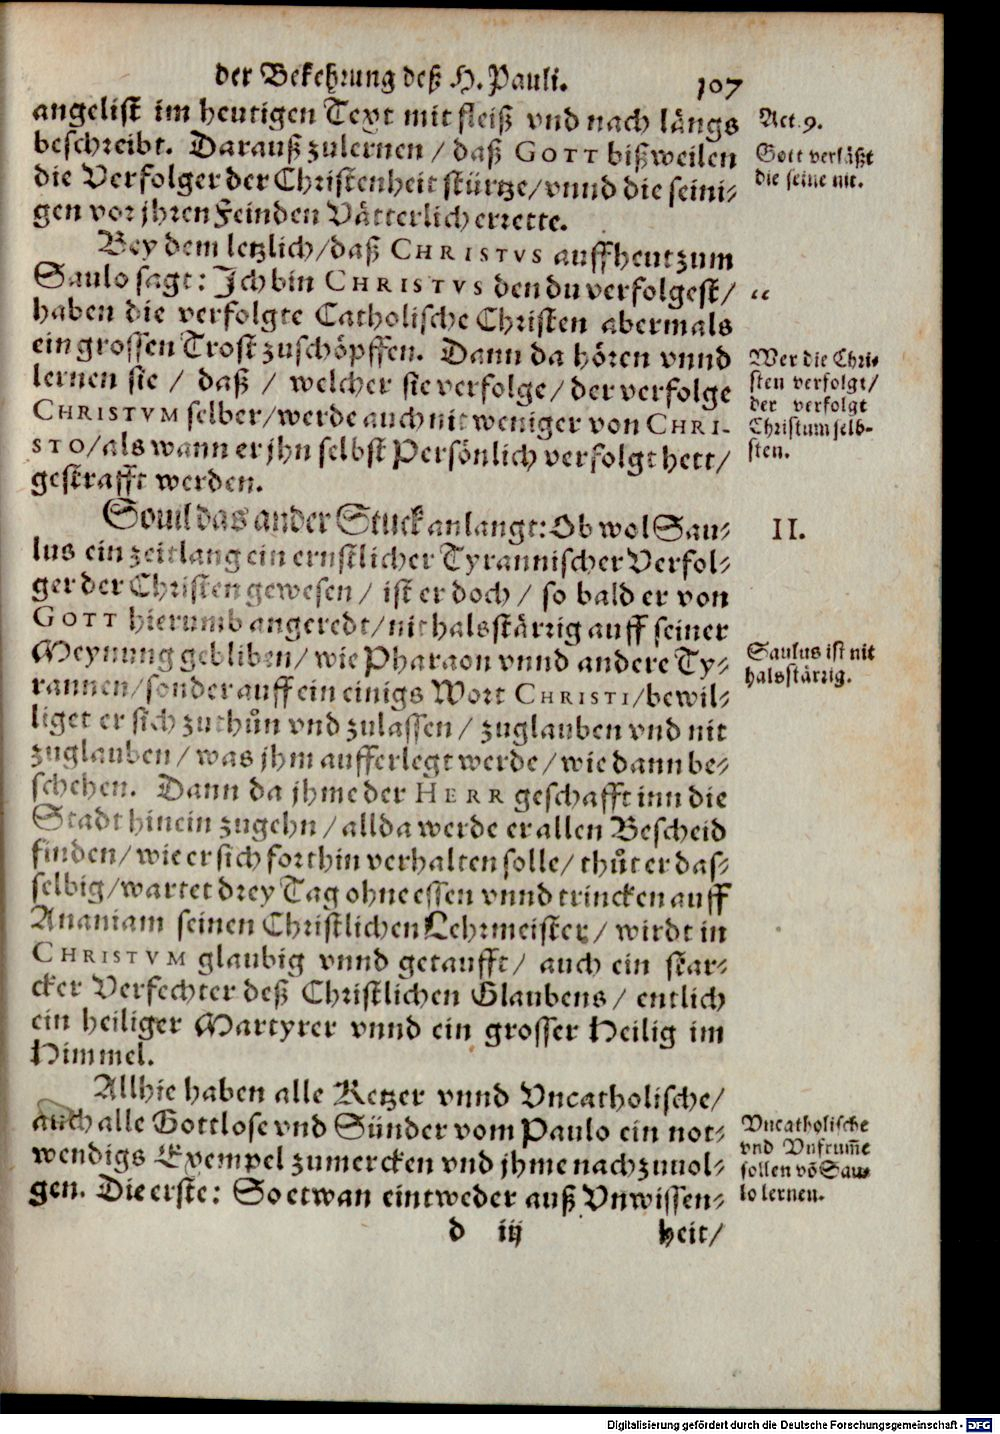 der Bekehrung deß H. Pauli. 107
angelist im heutigen Text mit fleiß vnd nach längs
beschreibt. Darauß zulernen / daß GOTT bißweilen
die Verfolger der Christenheit stürtze/vnnd die seini-
gen vor jhren Feinden Vätterlich errette.
Act. 9.
Gott verläßt
die seine nit.
Bey dem letzlich/daß CHRISTVS auff heut zum
Saulo sagt: Ich bin CHRISTVS den du verfolgest/
haben die verfolgte Catholische Christen abermals
ein grossen Trost zuschöpffen. Dann da hören vnnd
lernen sie / daß / welcher sie verfolge / der verfolge
CHRISTVM selber/werde auch nit weniger von CHRI-
STO/als wann er jhn selbst Persönlich verfolgt hett/
gestrafft werden.
“
Wer die Chri-
sten verfolgt/
der verfolgt
Christum selb-
sten.
Souil das ander Stuck anlangt: Ob wol Sau-
lus ein zeitlang ein ernstlicher Tyrannischer Verfol-
ger der Christen gewesen / ist er doch / so bald er von
GOTT hierumb angeredt/nit halsstärrig auff seiner
Meynung gebliben/wie Pharaon vnnd andere Ty-
rannen/sonder auff ein einigs Wort CHRISTI/bewil-
liget er sich zuthůn vnd zulassen / zuglauben vnd nit
zuglauben / was jhm aufferlegt werde / wie dann be-
schehen. Dann da jhme der HERR geschafft inn die
Stadt hinein zugehn / allda werde er allen Bescheid
finden/wie er sich forthin verhalten solle/thůt er das-
selbig/wartet drey Tag ohne essen vnnd trincken auff
Ananiam seinen Christlichen Lehrmeister/wirdt in
CHRISTVM glaubig vnnd getaufft/ auch ein star-
cker Verfechter deß Christlichen Glaubens / entlich
ein heiliger Martyrer vnnd ein grosser Heilig im
Himmel.
II.
Saulus ist nit
halsstärrig.
Allhie haben alle Ketzer vnnd Vncatholische/
auch alle Gottlose vnd Sünder vom Paulo ein not-
wendigs Exempel zumercken vnd jhme nachzuuol-
gen. Die erste: So etwan eintweder auß Vnwissen-
Vncatholische
vnd Vnfrum̃e
sollen võ Sau-
lo lernen.
d iij heit/
Digitalisierung gefördert durch die Deutsche Forschungsgemeinschaft - DFG